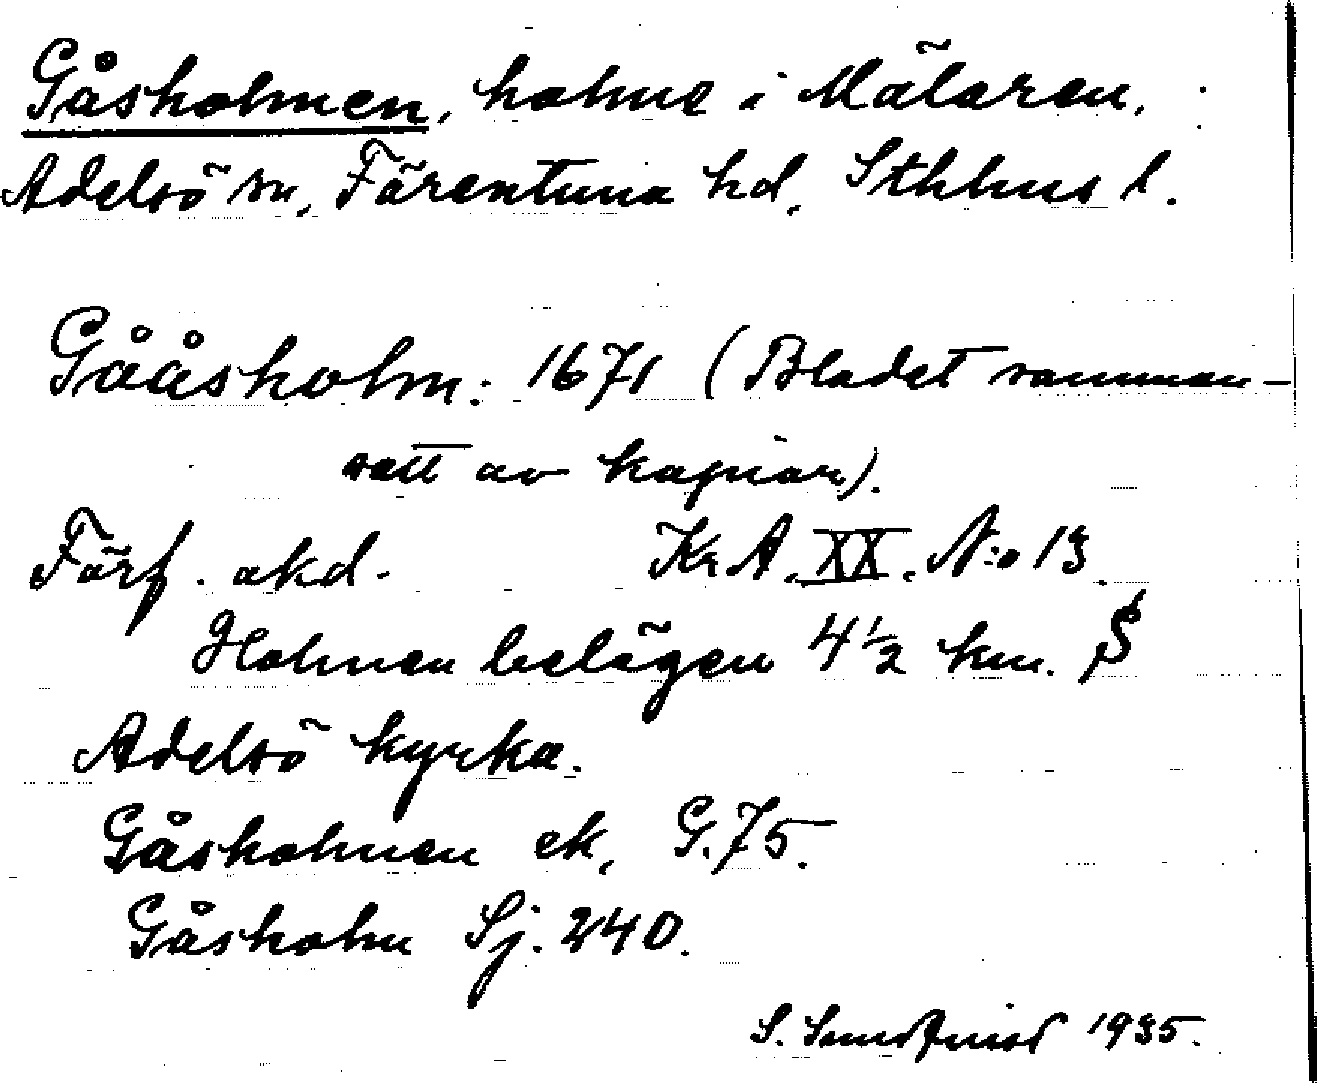 Gåsholmen, holme i Mälaren.
Adelsö sn, Färentuna hd, Sthlms l.
Gååsholm: 1671 (Bladet samman-
satt av kopior).
Förf. okd. Kr.A. XX. N:o 13.
Holmen belägen 4½ km. S
Adelsö kyrka.
Gåsholmen ek, G.75.
Gåsholm Sj. 240.
S. Sundquist 1935.